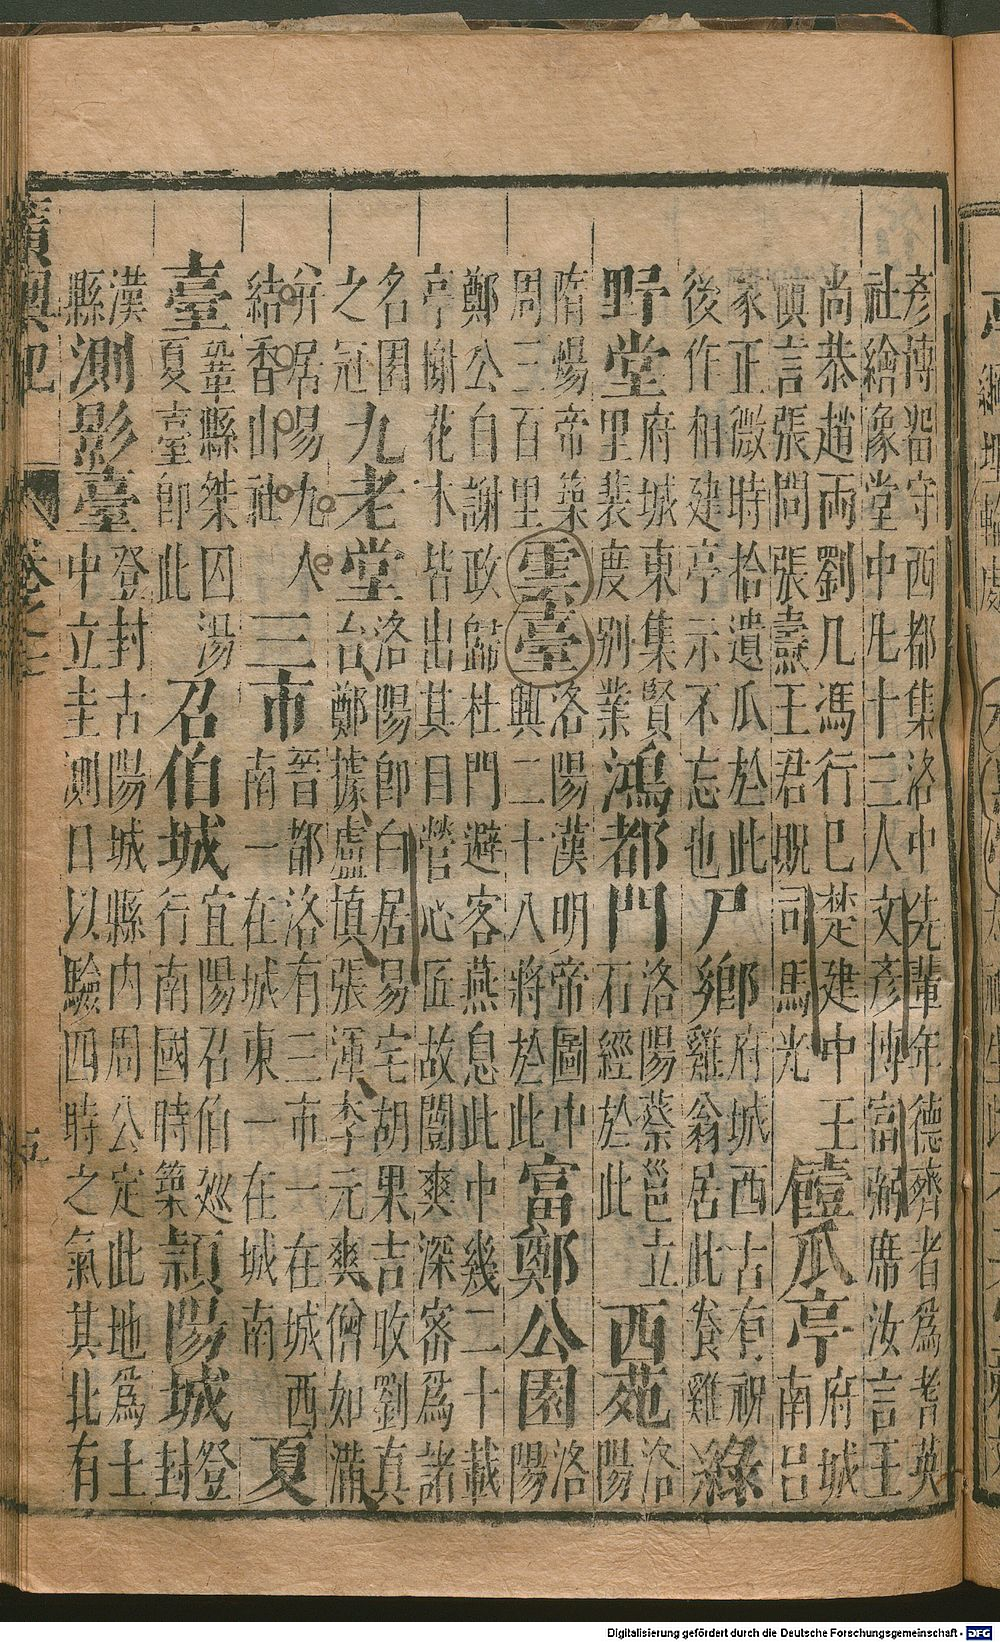 彥傅留守西都集洛中先輩年德齊者爲耆英
社繪像堂中凢十三人文彥博富弼席汝言王
尚恭趙丙劉几馮行巳楚建中王
愼言張問張燾王君貺司馬光
饐瓜亭
府城
南呂
家正微時拾遺瓜於此
後作相建亭示不忘也
尸鄉
府城西古有祝
雞翁居此養雞
綠
野堂
府城東集賢
里裴度别業
鴻都門
洛陽蔡邕立
石經於此
西苑
洛
陽
隋煬帝築
周三百里
雲臺
洛陽漢明帝圖中
興二十八將於此
富鄭公園
洛
陽
鄭公自謝政歸杜門避客燕息此中幾二十載
亭榭花木皆出其目營心匠故闓爽深密爲諸
名園
之冠
九老堂
洛陽卽白居易宅胡果吉旼劉真
台鄭據盧塡張渾李元爽僧如滿
并居易九人
結香山社
三市
晉都洛有三市一在城西
南一在城東一在城南
夏
臺
鞏縣桀囚湯
夏臺卽此
召伯城
宜陽召伯廵
行南國時築
潁陽城
登
封
漢
縣
測影臺
登封古陽城縣内周公定此地爲土
中立圭測日以驗四時之氣其北有
廣輿記
五
Digitalisierung gefördert durch die Deutsche Forschungsgemeinschaft - DFG